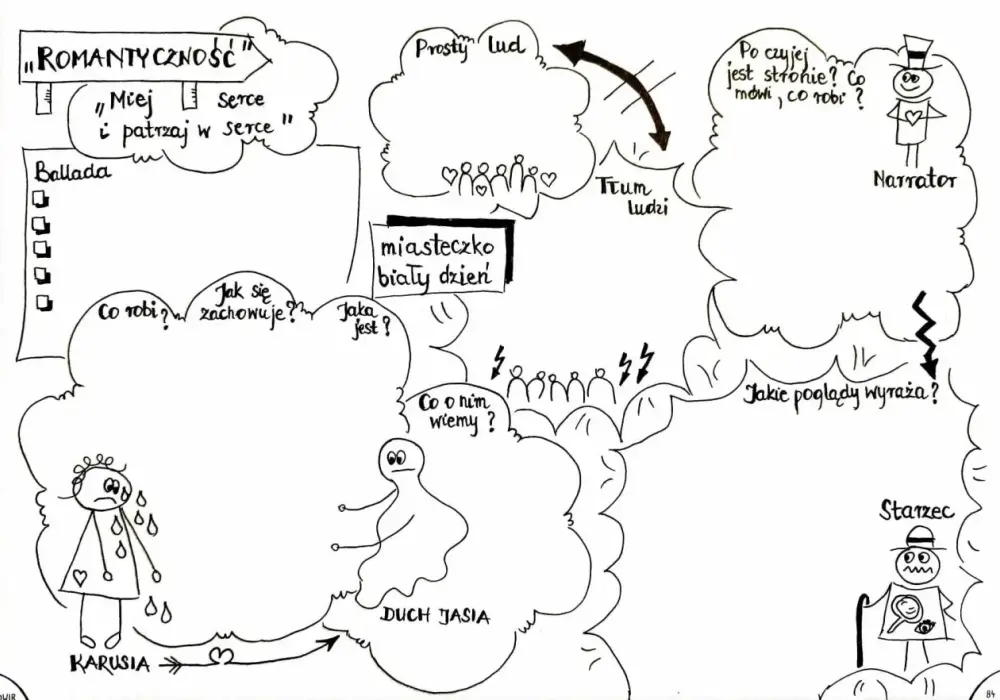 „ROMANTYCZNOŚĆ"
„Miej serce
i patrzaj w serce"
Ballada
Prosty lud
Tłum
ludzi
Po czyjej
jest stronie? Co
mówi, co robi?
Narrator
miasteczko
biały dzień
Co robi?
Jak się
zachowuje?
Jaka
jest?
Co o nim
wiemy?
Jakie poglądy wyraża?
Starzec
DUCH JASIA
KARUSIA
84